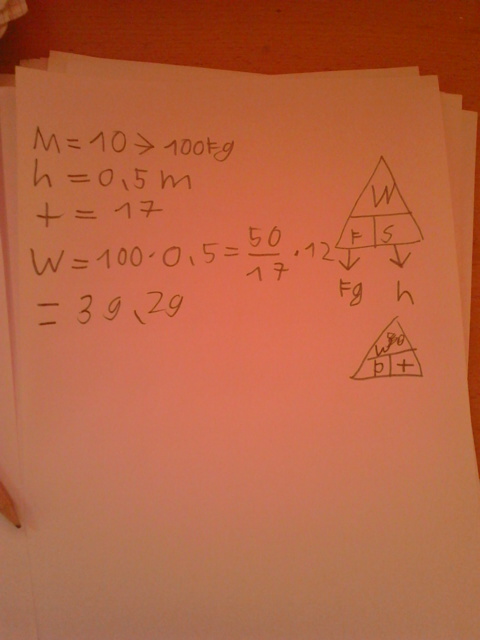 M = 10 → 100Fg
h = 0,5 m
t = 17
W = 100 · 0,5 = 50/17 · 12
= 39,29
W
F S
Fg h
W
P t